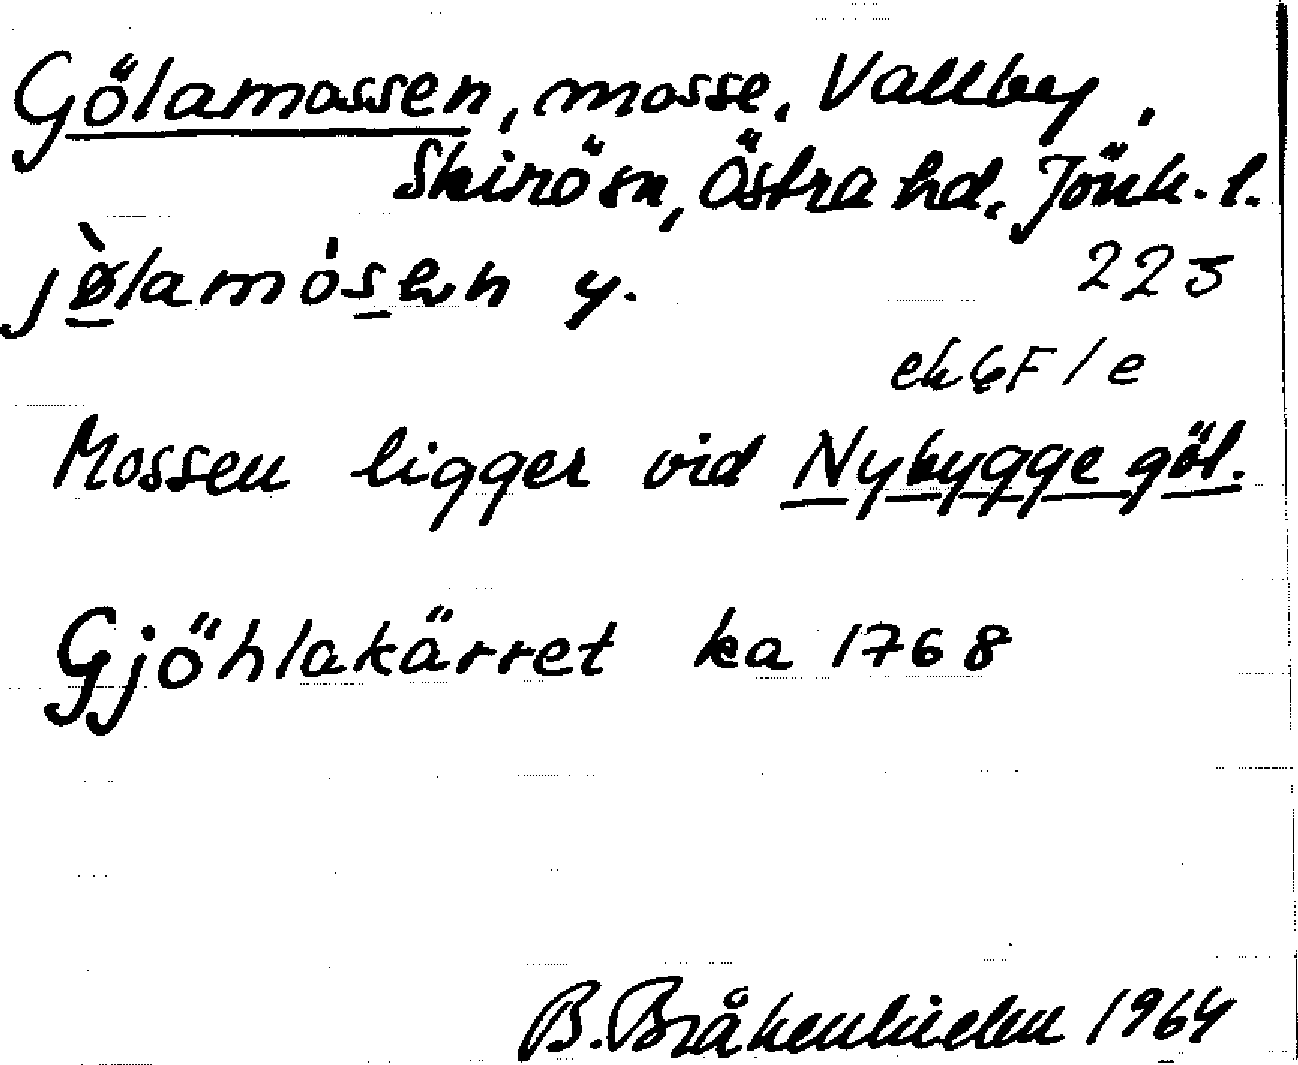 Gölamossen, mosse, Vallby,
Skirö sn, Östra hd, Jönk. l.
jø̀lamósen y.
223
ek 6F/e
Mossen ligger vid Nybygge göl.
Gjöhlakärret ka 1768
1964